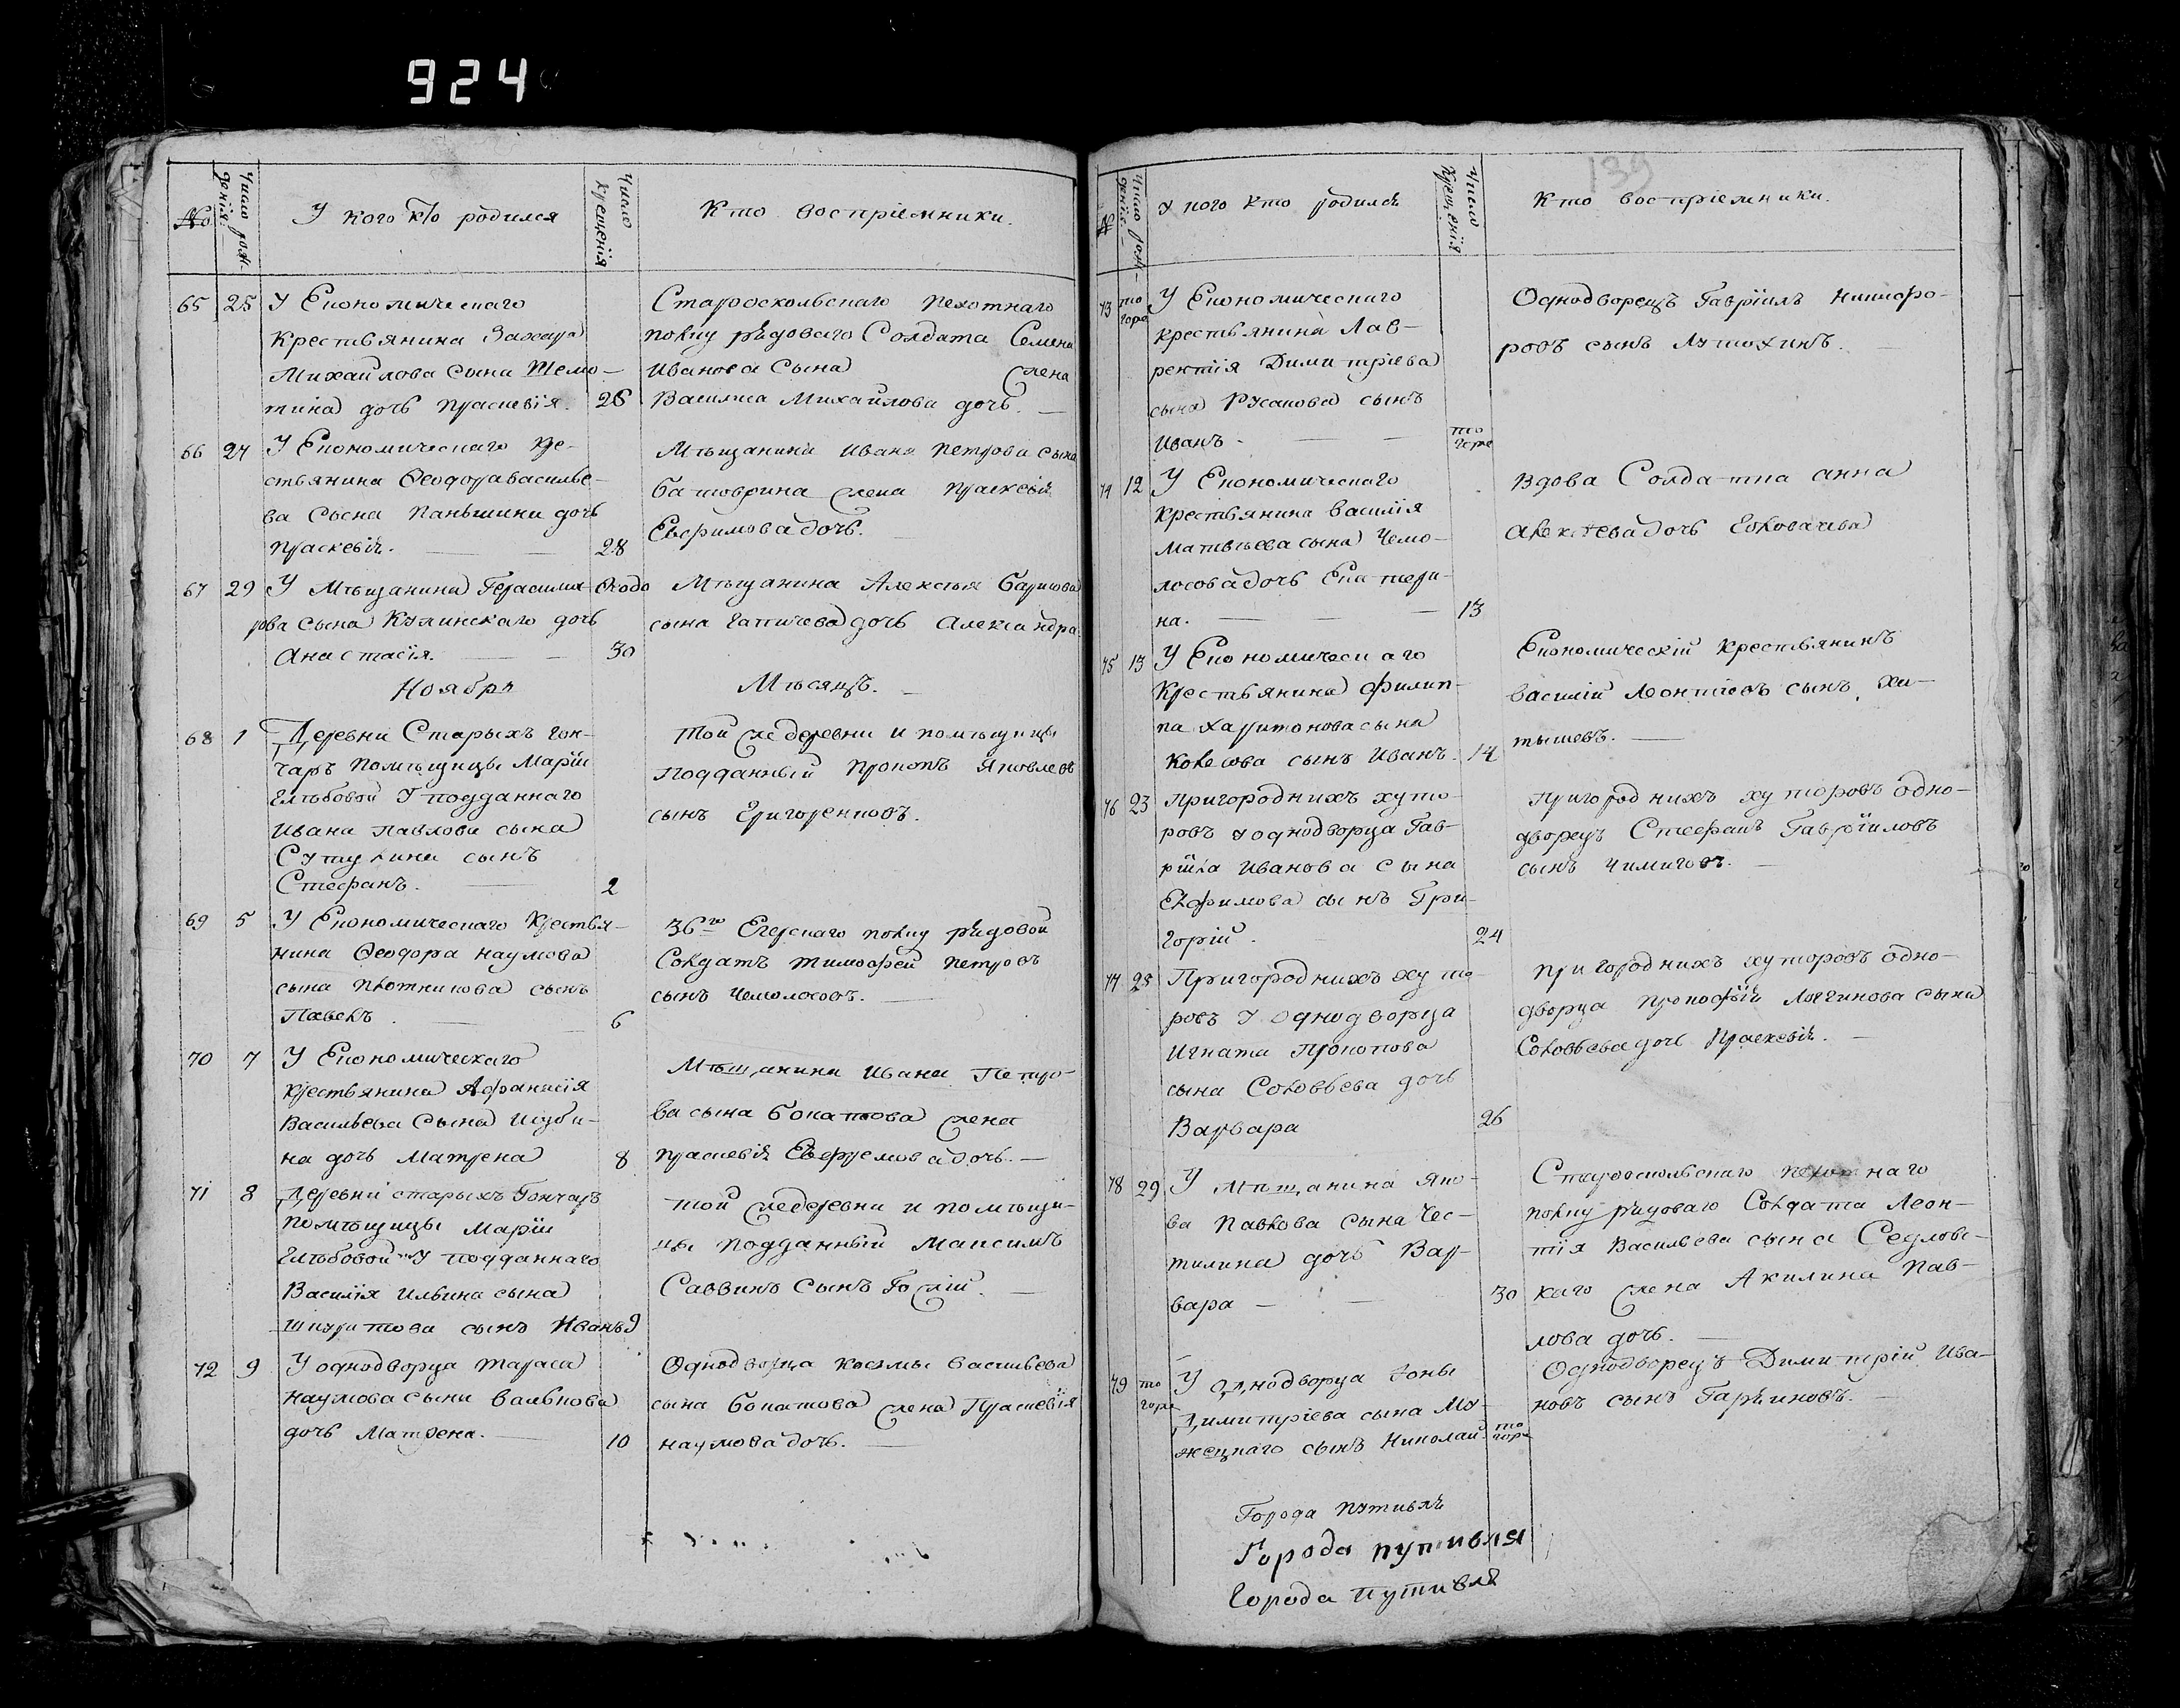 924
№
Число рож-
денія
У кого кто родился
Число
крещенія
Кто воспріемники.
65 25 У Економическаго
крестьянина Захара
Михайлова сына
дочь Праскевія. 26
Старооскольскаго пехотнаго
полку рядоваго Солдата Семена
Иванова Сына жена
Василиса Михайлова дочь.
66 27 У Економическаго кре-
стьянина Феодора василье-
ва Сына Паньшина дочь
Праскевія. 28
Мѣщанина Ивана Петрова сына
жена Праскевія
Евфимова дочь.
67 29 У Мѣщанина Герасима Феодо
рова сына Кулинскаго дочь
Анастасія. 30
Мѣщанина Алексѣя Борисова
сына дочь Александра.
Ноябрь Мѣсяцъ.
68 1 Деревни Старыхъ Гон-
чаръ Помѣщицы Маріи
Глѣбовой У подданнаго
Ивана Павлова сына
сынъ
Стефанъ. 2
Той же деревни и помѣщицы
Подданный Прокопъ Яковлевъ
сынъ Григоренковъ.
69 5 У Економическаго крестья-
нина Феодора Наумова
сына Плотникова сынъ
Павелъ. 6
36го Егерскаго полку рядовой
Солдатъ Тимофей Петровъ
сынъ Чемолосовъ.
70 7 У Економическаго
крестьянина Афанасія
Васильева Сына Шуби-
на дочь Матрена 8
Мѣщанина Ивана Петро-
ва сына Бокатова жена
Праскевія Евфремова дочь.
71 8 Деревни старыхъ Гончаръ
Помѣщицы Маріи
Глѣбовой У подданнаго
Василія Ильина сына
сынъ Иванъ 9
Той же деревни и помѣщи-
цы Подданный Максимъ
Саввинъ Сынъ Гожій.
72 9 У однодворца Тараса
Наумова сына Валькова
дочь Матрена. 10
Однодворца Космы Васильева
сына Бокатова жена Праскевія
Наумова дочь.
139
№
Число рож-
денія
У кого кто родился
Число
крещенія
Кто воспріемники.
73 тогоже У Економическаго
крестьянина Лав-
рентія Димитріева
сына Русанова сынъ
Иванъ. тогоже
Однодворецъ Гавріилъ Никифо-
ровъ сынъ Лутохинъ.
74 12 У Економическаго
крестьянина Василія
Матвѣева сына Чемо-
лосова дочь Екатери-
на. 13
Вдова Солдатка Анна
Алексѣева дочь
75 13 У Економическаго
Крестьянина Филип-
па Харитонова сына
Колесова сынъ Иванъ. 14
Економическій крестьянинъ
Василій Леонтіевъ сынъ Хи-
тышевъ.
76 23 Пригороднихъ хуто-
ровъ У однодворца Гав-
ріила Иванова сына
Евфимова сынъ Гри-
горій. 24
Пригороднихъ хуторовъ одно-
дворецъ Стефанъ Гавріиловъ
сынъ Чимиговъ.
77 25 Пригороднихъ хуто
ровъ У однодворца
Игната Прокопова
сына Соловьева дочь
Варвара 26
Пригороднихъ хуторовъ одно-
дворца Прокофія Логгинова сына
Соловьева дочь Праскевія.
78 29 У Мѣщанина Яко-
ва Павлова сына Чес-
тилина дочь Вар-
вара 30
Старооскольскаго пехотнаго
полку рядоваго Солдата Леон-
тія Васильева сына Седловс-
каго жена Акилина Пав-
лова дочь.
79 тогоже У однодворца Іоны
Димитріева сына Му-
жецкаго сынъ Николай тогоже
Однодворецъ Димитрій Ива-
новъ сынъ Гаркиновъ.
Города Путивля
Города Путивля
Города Путивля